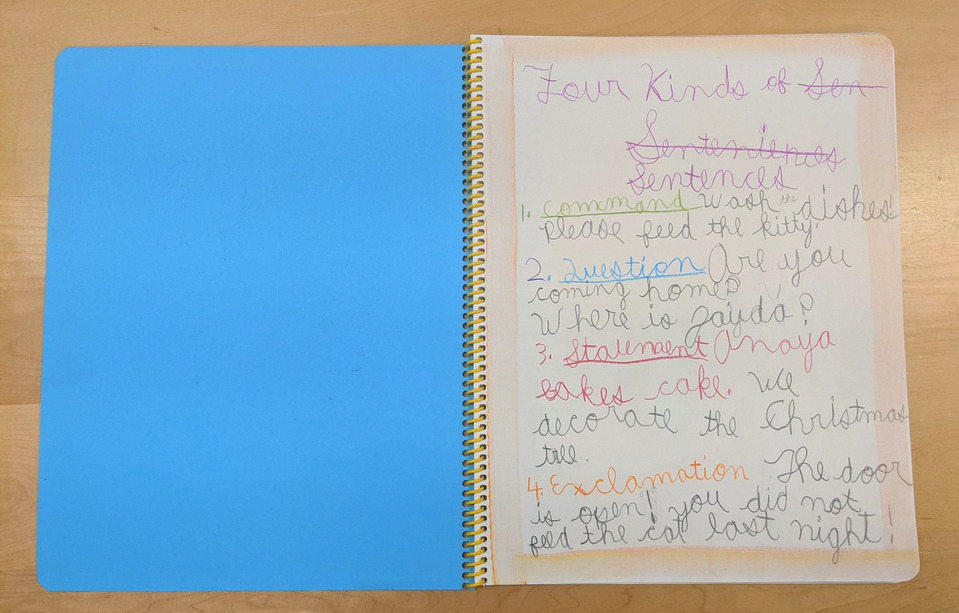 Four Kinds of Sen
Senteniences
Sentences
1. Command Wash the dishes!
please feed the kitty.
2. Question Are you
coming home?
Where is Zayda?
3. Statement Anaya
bakes cake. We
decorate the Christmas
tree.
4. Exclamation The door
is open! you did not
feed the cat last night!